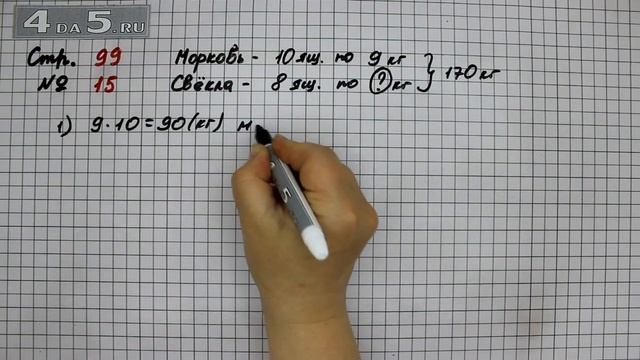 4DA5.RU
Стр. 99 Морковь - 10 ящ. по 9 кг
№ 15 Свёкла - 8 ящ. по ? кг } 170 кг
1) 9·10=90(кг) м
5